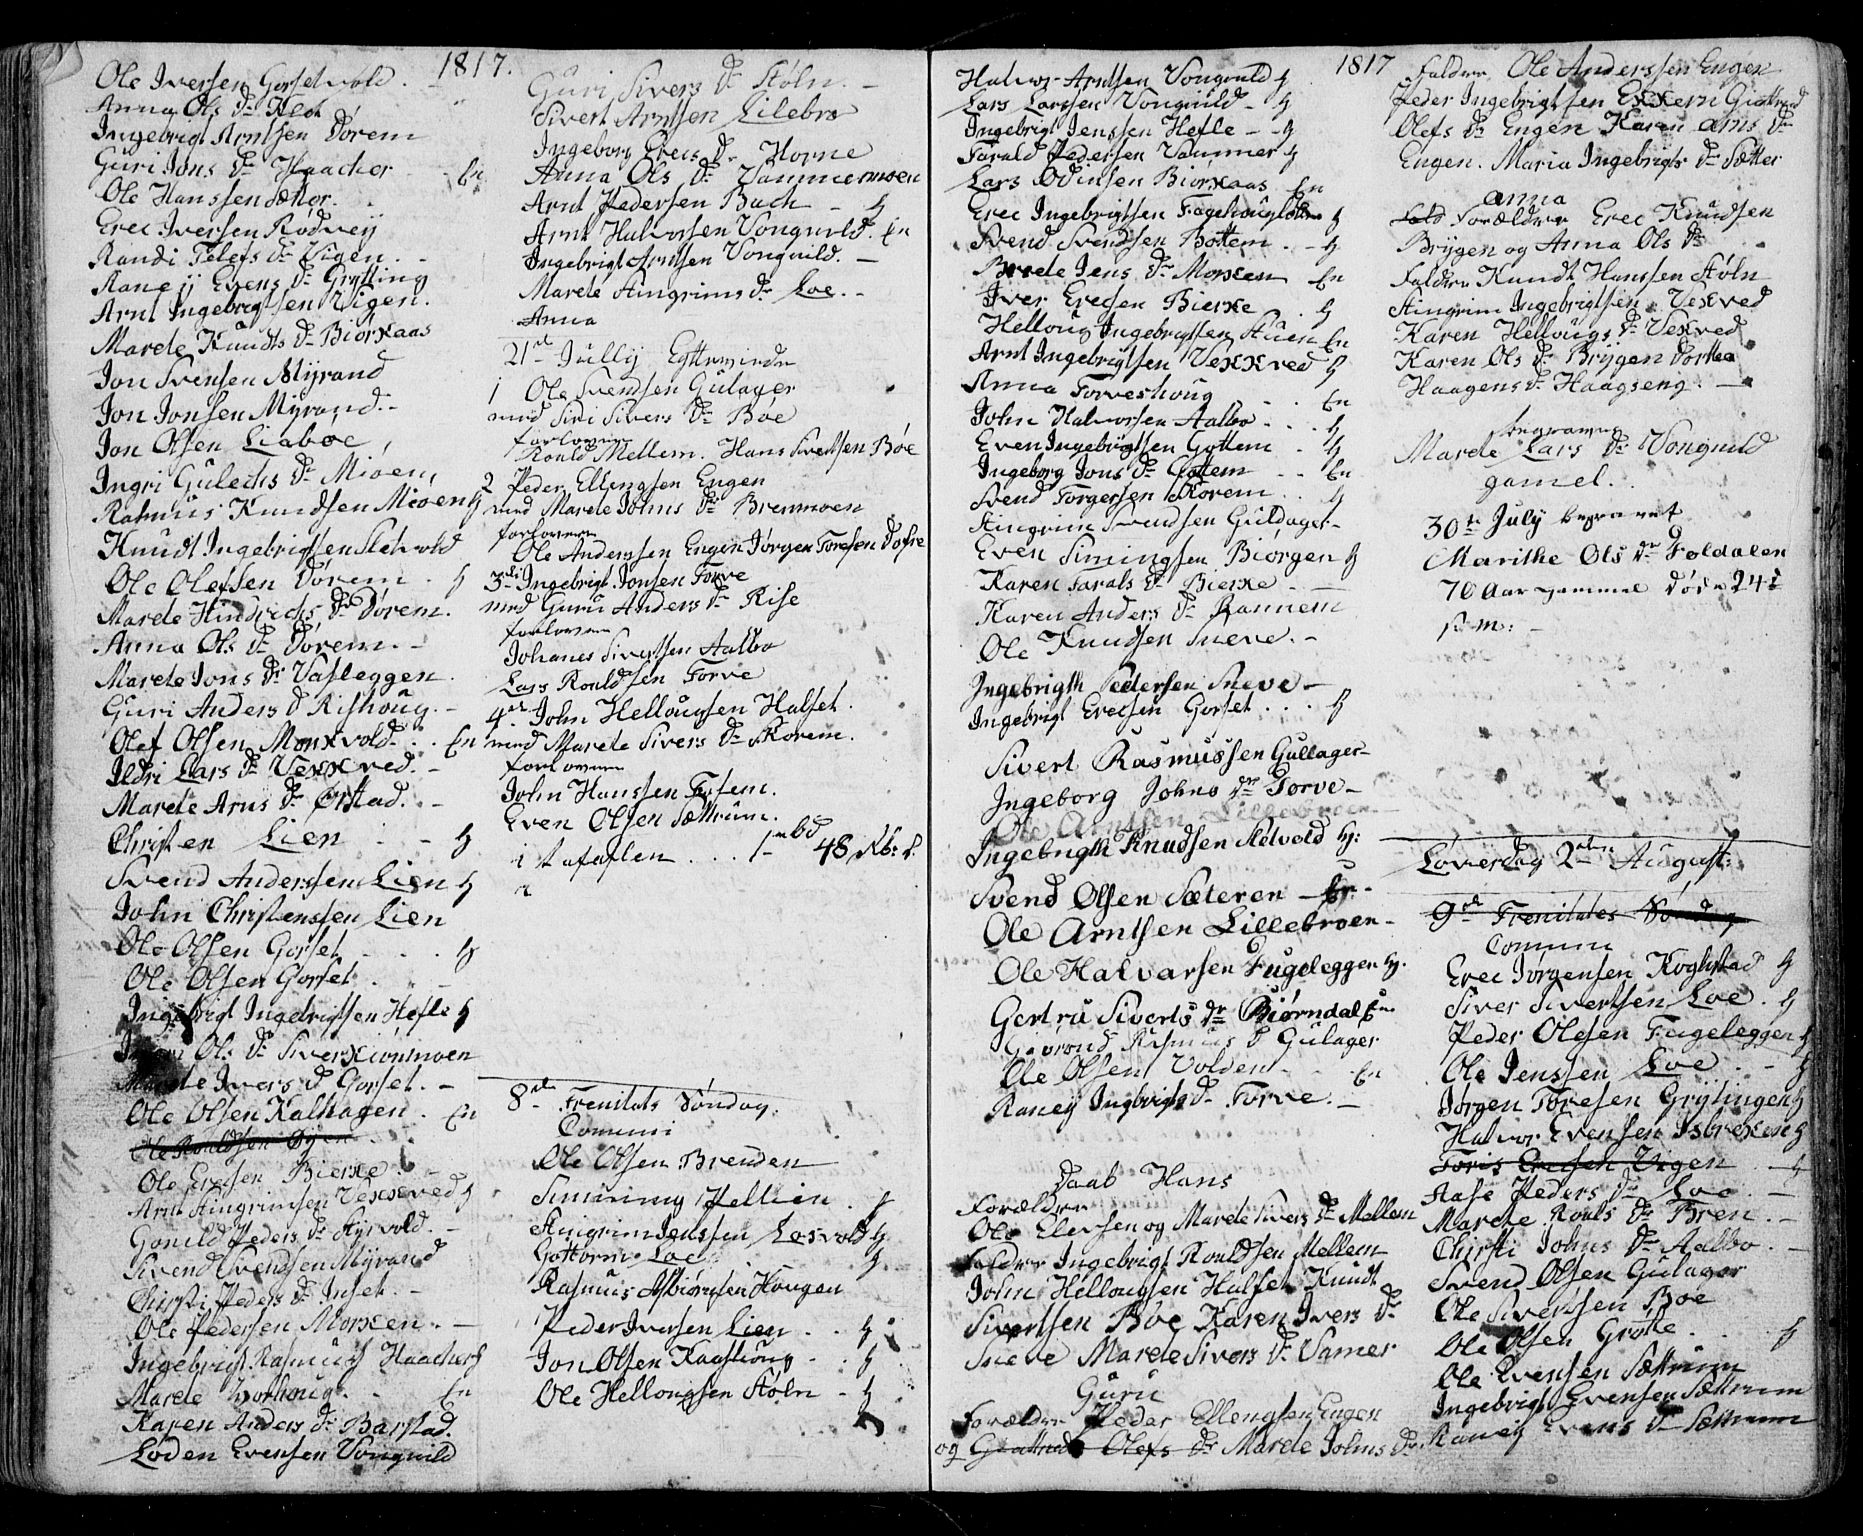 1817.
Ole Iversen Gorsetvold
Anna Ols Dr Klet
Ingebrigt Arntsen Dorem
Guri Jons Dr Haacher En
Ole Hanssen Sæter
Erec Iversen Rødvey
Randi Telefs Dr Vigen
Raney Evens Dr Grytting
Arnt Ingebrigtsen Vigen.
Marete Knudts Dr Biørkaas
Jon Svensen Myrand
Jon Jonsen Myrand
Jon Olsen Liabøe
Ingri Gulechs Dr Mioen
Rasmus Knudsen Mioen H
Knudt Ingebrigtsen Sletvold
Ole Olefsen Dörem H
Marete Hindrechs Dr Dörem.
Anna Ols Dr Dörem.
Marete Jons Dr Vasleggen
Guri Anders D Rishoug.
Olef Olsen Monkvold En
Ildri Lars Dr Vekkved.
Marete Arns Dr Ørstad.
Christen Lien H
Svend Anderssen Lien H
John Christenssen Lien
Ole Olsen Gorset H
Ole Olsen Gorset
Ingebrigt Ingebrigtsen Hefle H
Ols Dr Siverkiønmoen
Marete Ivers D Gorset.
Ole Olsen Kalhagen En
Ole Rouldsen Øyen
Ole Erecsen Bierke
Arnt Stingrimsen Vekkeved H
Gonild Peders Dr Styrvold.
Svend Svendsen Myrand
Chirsti Peders Dr Inset.
Ole Pedersen Morken.
Ingebrigt Rasmus Haacher H
Marete En
Karen Anders Dr Barstad.
Loden Evensen Vonguild
Guri Sivers Dr Støln
Sivert Arntsen Lilebro
Ingeborg Erecs Dr Horne
Anna Ols Dr Vammermoen
Arnt Pedersen Bach H
Arnt Halvorsen Vonguild. En
Ingebrigt Arntsen Vonguild.
Marete Stingrims Dr Loe.
Anna
21de Jully Egteviede
1 Ole Svendsen Gulager
med Siri Sivers Dr Boe
forlovere
Rould Mellem. Hans Sivertsen Böe
2 Peder Ellengsen Engen
med Marete Johns Dr Bremmoen
forlovere
Ole Anderssen Engen Jörgen Toresen Dofre
3die Ingebrigt Jonsen Torve
med Guru Anders Dr Rise
forlovere
Johanes Sivertsen Aalbo
Lars Rouldsen Torve
4de John Hellougsen Halset.
med Marete Sivers Dr Skorem.
forlovere
John Hanssen Fosem.
Even Olsen Sættrum.
i tafaflen 1 bd 48
8de Trenitats Søndag.
Comuni
Ole Olsen Brenden
Simining Pellien H
Stingrim Jenssen Losvold H
Gottorm Loe H
Rasmus Asbiørnsen Hougen
Peder Iversen Lien H
Jon Olsen Kaashoug H
Ole Hellougsen Støln H
1817
Halvor Arntsen Vonguild H
Lars Larssen Vonguild H
Ingebrigt Jenssen Hefle H
Tarald Pedersen Vammer H
Lars Odinsen Biørkaas En
Erec Ingebrigtsen H
Svend Svendsen Bottem H
Brede Jens Dr Morken En
Iver Erecsen Bierke H
Helloug Ingebrigtsen Stuen En
Arnt Ingebrigtsen Vekkved H
Anna Torveshoug En
John Halvorsen Aalbo H
Even Ingebrigtsen Gottem H
Ingeborg Jons Dr Gottem En
Svend Torgersen Skorem H
Stingrim Svendsen Guldager
Even Simingsen Biörgen H
Karen Taralds Dr Bierke
Karen Anders Dr Rannem
Ole Knudsen Sneve.
Ingebrigth Pedersen Sneve
Ingebrigt Erecsen Gorset H
Sivert Rasmussen Gullager
Ingeborg Johns Dr Torve
Ole Arntsen Lillebroen
Ingebrigth Knudsen Sletvold H:
Svend Olsen Sæteren
Ole Arntsen Lillebroen
Ole Halvarsen Fugeleggen H.
Gertru Siverts Dr Biørndal En
Rasmus D Gulager
Ole Olsen Volden En
Raney Ingbrigts Dr Torve.
Daab Hans
Forældre
Ole Elevsen og Marete Sivers Dr Mellem
Faddre Ingebrigt Rouldsen Mellem
John Hellougsen Halset Knudt
Sivertsen Böe Karen Ivers Dr
Sneve Marete Sivers Dr Vamer
Guru
Forældre Peder Ellengsen Engen
og Olefs Dr Marete Johns Dr
Faldre Ole Anderssen Engen
Peder Ingebrigtsen Ekkern
Olefs Dr Engen Karen Arns Dr
Engen. Maria Ingebrigts Dr Sætter
Anna
Forældre Erec Knudsen
Brygen og Anna Ols Dr
Faldre Knudt Hanssen Støln
Stingrim Ingebrigtsen Vekved
Karen Hellougs Dr Vekved
Karen Ols Dr Brygen Dortea
Haagens Dr Haagseng.
begraven
Marete Lars Dr Vonguld
gamel.
30te July begravet
Marithe Ols Dr Foldalen
70 Aar gammel döde 24i
s: m:
Løverdag 2den August:
9de Trenitates Søndag
Comuni
Erec Jørgensen Koghstad H
Siver Sivertsen Loe. H
Peder Olesen Fugeleggen H
Ole Jenssen Loe H
Jørgen Toresen Grytingen H
Halvor Evensen Isbrekken H
Toris Erecsen Vigen H
Aase Peders Dr Loe
Marete Rouls Dr Bren.
Chirsti Johns Dr Aalbo.
Svend Olsen Gulager
Ole Sivertsen Boe
Ole Olsen Grøte H
Ole Evensen Sættrum
Ingebrigt Evensen Sættrum
Raney Evens Dr Sættrum